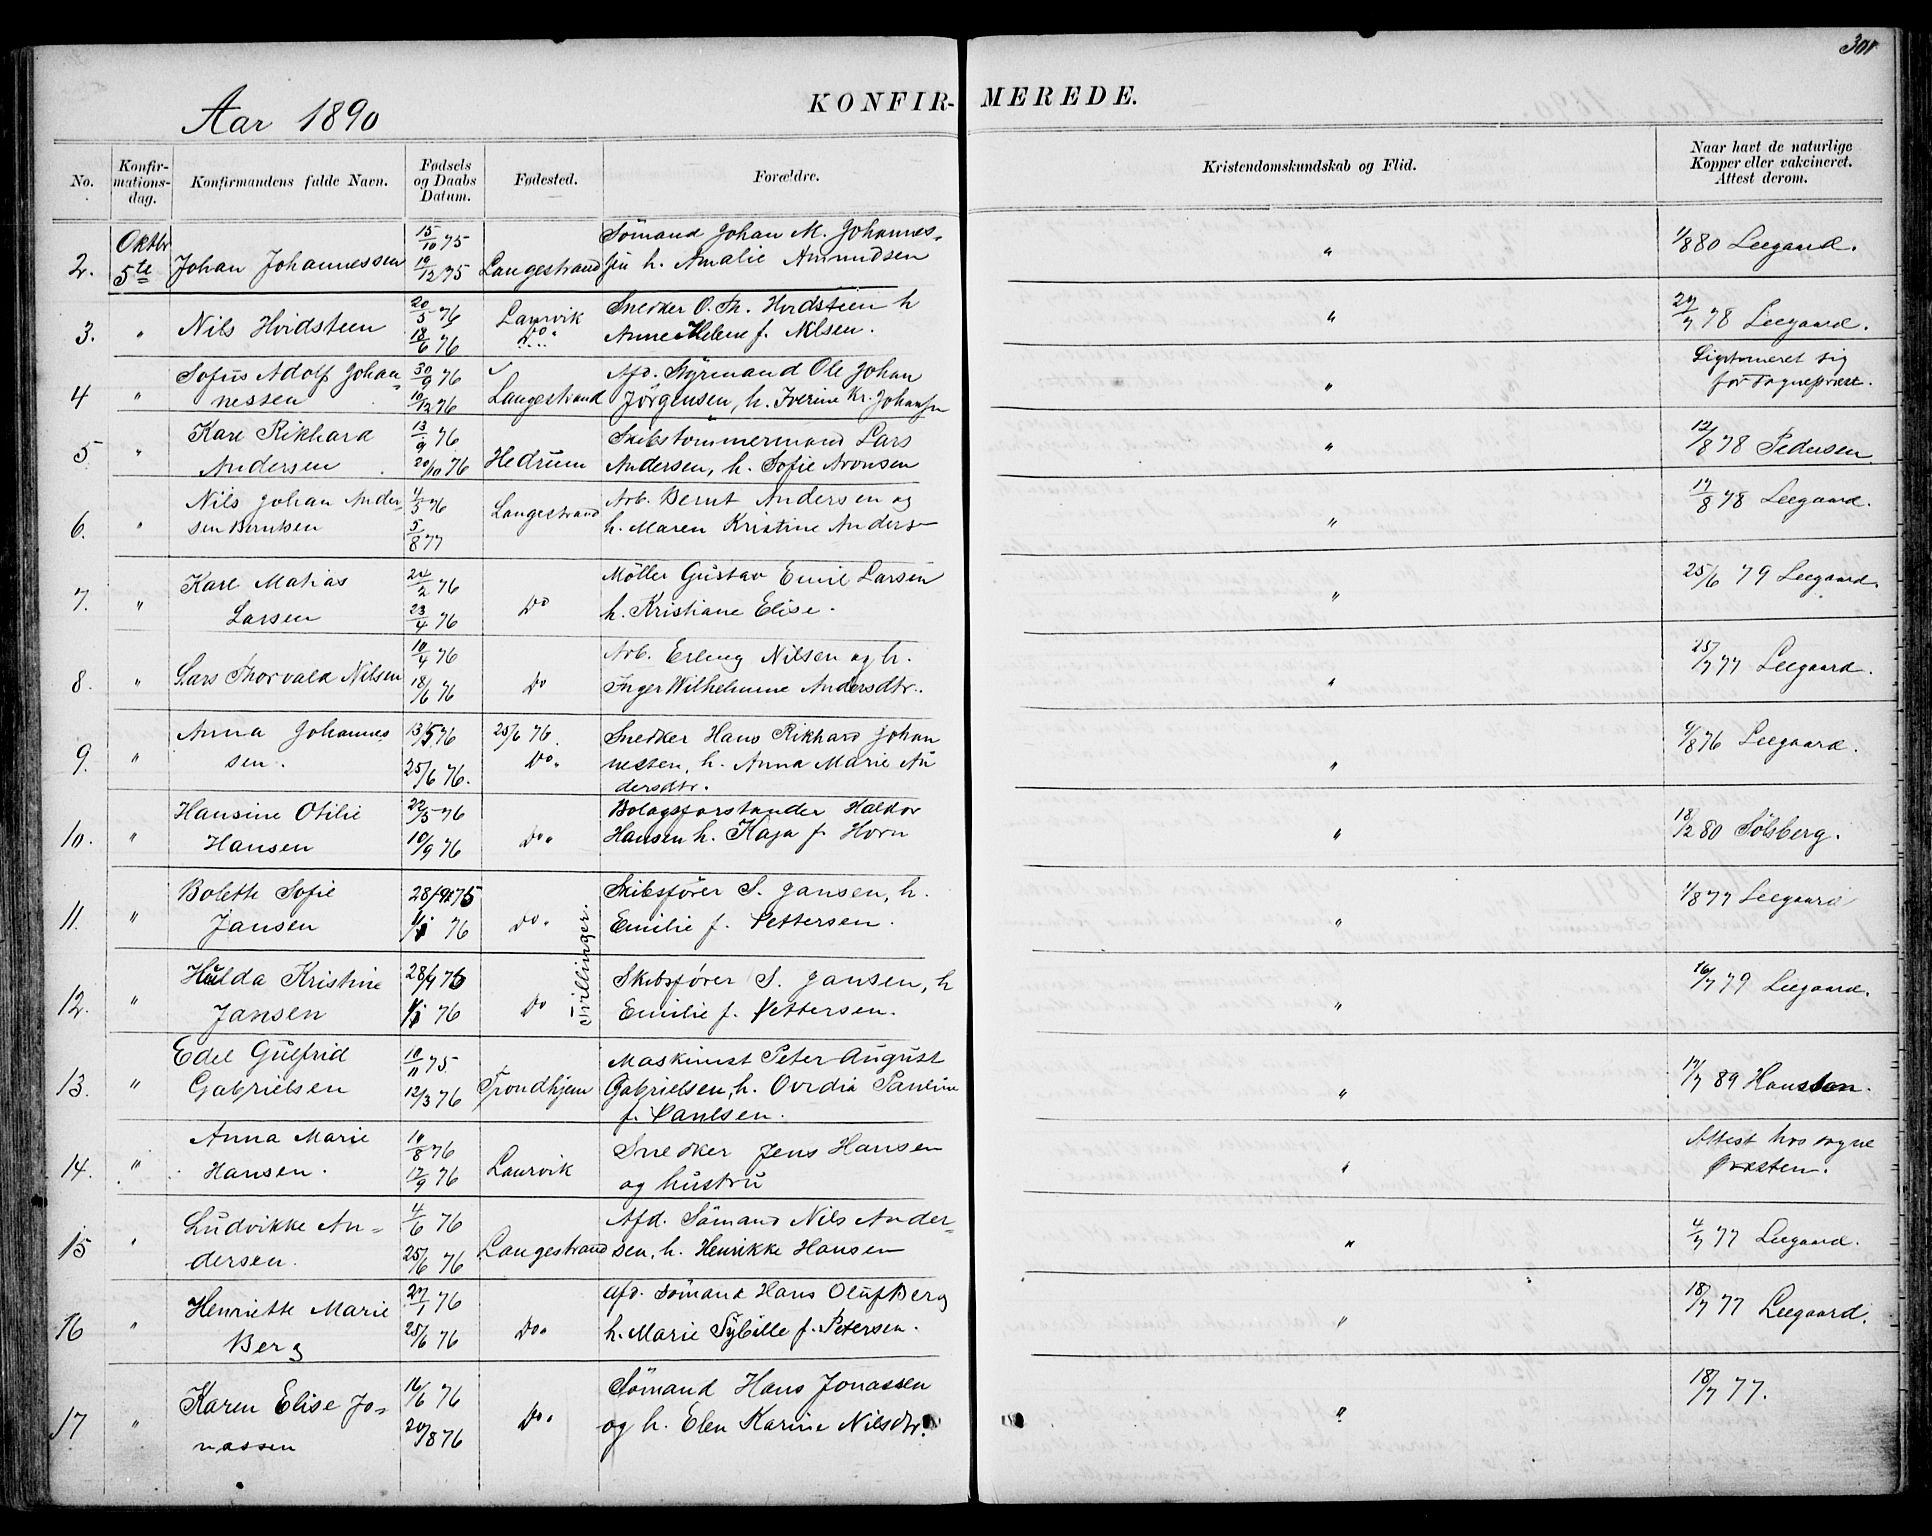 301
Aar 1890
KONFIR-MEREDE.
No.
Konfir-
mations-
dag.
Konfirmandens fulde Navn.
Fødsels
og Daabs
Datum.
Fødested.
Forældre.
Kristendomskundskab og Flid.
Naar havt de naturlige
Kopper eller vakcineret.
Attest derom.
2. Oktbr 5te Johan Johannessen 15/10 75 19/12 75 Langestrand
Sømand Johan M. Johannes-
sen h. Amalie Amundsen
" 1/8 80 Leegaard.
3. " Nils Hvidsteen 20/5 76 18/6 76 Laurvik Do.
Snedker O. Th. Hvidsteen h
Anne Helene f. Nilsen.
" 29/7 78 Leegaard.
4 " Sofus Adolf Johan-
nessen 30/9 76 10/12 76 Langestrand
Afd. Styrmand Ole Johan
Jørgensen, h. Iverine Kr. Johansen
"
for Sognepræst.
5 " Karl Rikhard
Andersen 13/9 76 20/10 76 Hedrum
Skibstømmermand Lars
Andersen, h. Sofie Aronsen
" 12/8 78 Pedersen
6. " Nils Johan Ander-
sen Berntsen 4/5 76 5/8 77 Langestrand
Arb. Bernt Andersen og
h. Maren Kristine Anders-
" 17/8 78 Leegaard.
7. " Karl Matias
Larsen 24/2 76 23/4 76 Do
Møller Gustav Emil Larsen
h. Kristiane Elise.
" 25/6 79 Leegaard.
8. " Lars Thorvald Nilsen 10/4 76 18/6 76 Do
Arb. Erling Nilsen og h.
Inger Wilhelmine Andersdtr.
" 25/7 77 Leegaard.
9. " Anna Johannes
sen. 13/5 76 25/6 76. 25/6 76. Do.
Snedker Hans Rikhard Johan
nessen, h. Anna Marie An
dersdtr.
" 9/8 76 Leegaard.
10. " Hansine Otilie
Hansen 22/5 76 10/9 76 Do.
Bolagsforstander Haldor
Hansen h. Kaja f. Horn
" 18/2 80 Sølsberg.
11. " Bolette Sofie
Jansen 28/9 75 1/1 76 Do.
Tvillinger.
Skibsfører S. Jansen, h.
Emilie f. Pettersen.
" 1/8 77 Leegaard
12. " Hulda Kristine
Jansen 28/9 75 1/1 76 Do
Skibsfører S. Jansen, h
Emilie f. Pettersen.
" 16/7 79 Leegaard.
13. " Edel Gulfrid
Gabrielsen 10/11 75 12/3 76 Trondhjem
Maskinist Peter August
Gabrielsen, h. Ovidia Pauline
f. Paulsen.
" 17/7 89
14. " Anna Marie
Hansen. 10/8 76 17/9 76 Laurvik
Snedker Jens Hansen
og hustru
" Attest hos sogne
præsten.
15 " Ludvikke An-
dersen. 4/6 76 25/6 76 Langestrand
Afd. Sømand Nils Ander-
sen, h. Henrikke Hansen
" 4/7 77 Leegaard.
16 " Henriette Marie
Berg 27/1 76 25/6 76 Do.
Afd. Sømand Hans Oluf Berg
h. Marie Sybille f. Petersen.
" 18/7 77 Leegaard.
17 " Karen Elise Jo-
nassen 16/6 76 20/8 76 Do.
Sømand Hans Jonassen
og h. Elen Karine Nilsdtr.
" 18/7 77.